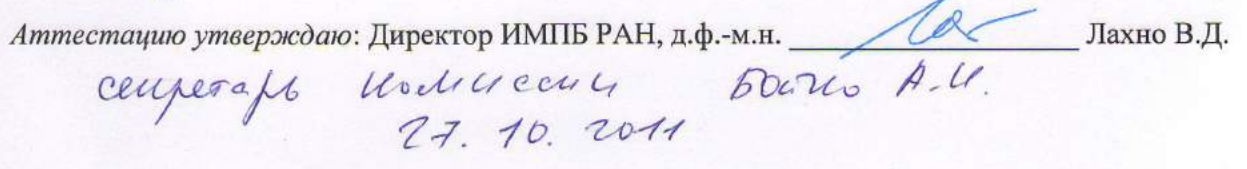 Аттестацию утверждаю: Директор ИМПБ РАН, д.ф.-м.н. Лахно В.Д.
секретарь комиссии Бойко А.И.
27. 10. 2011